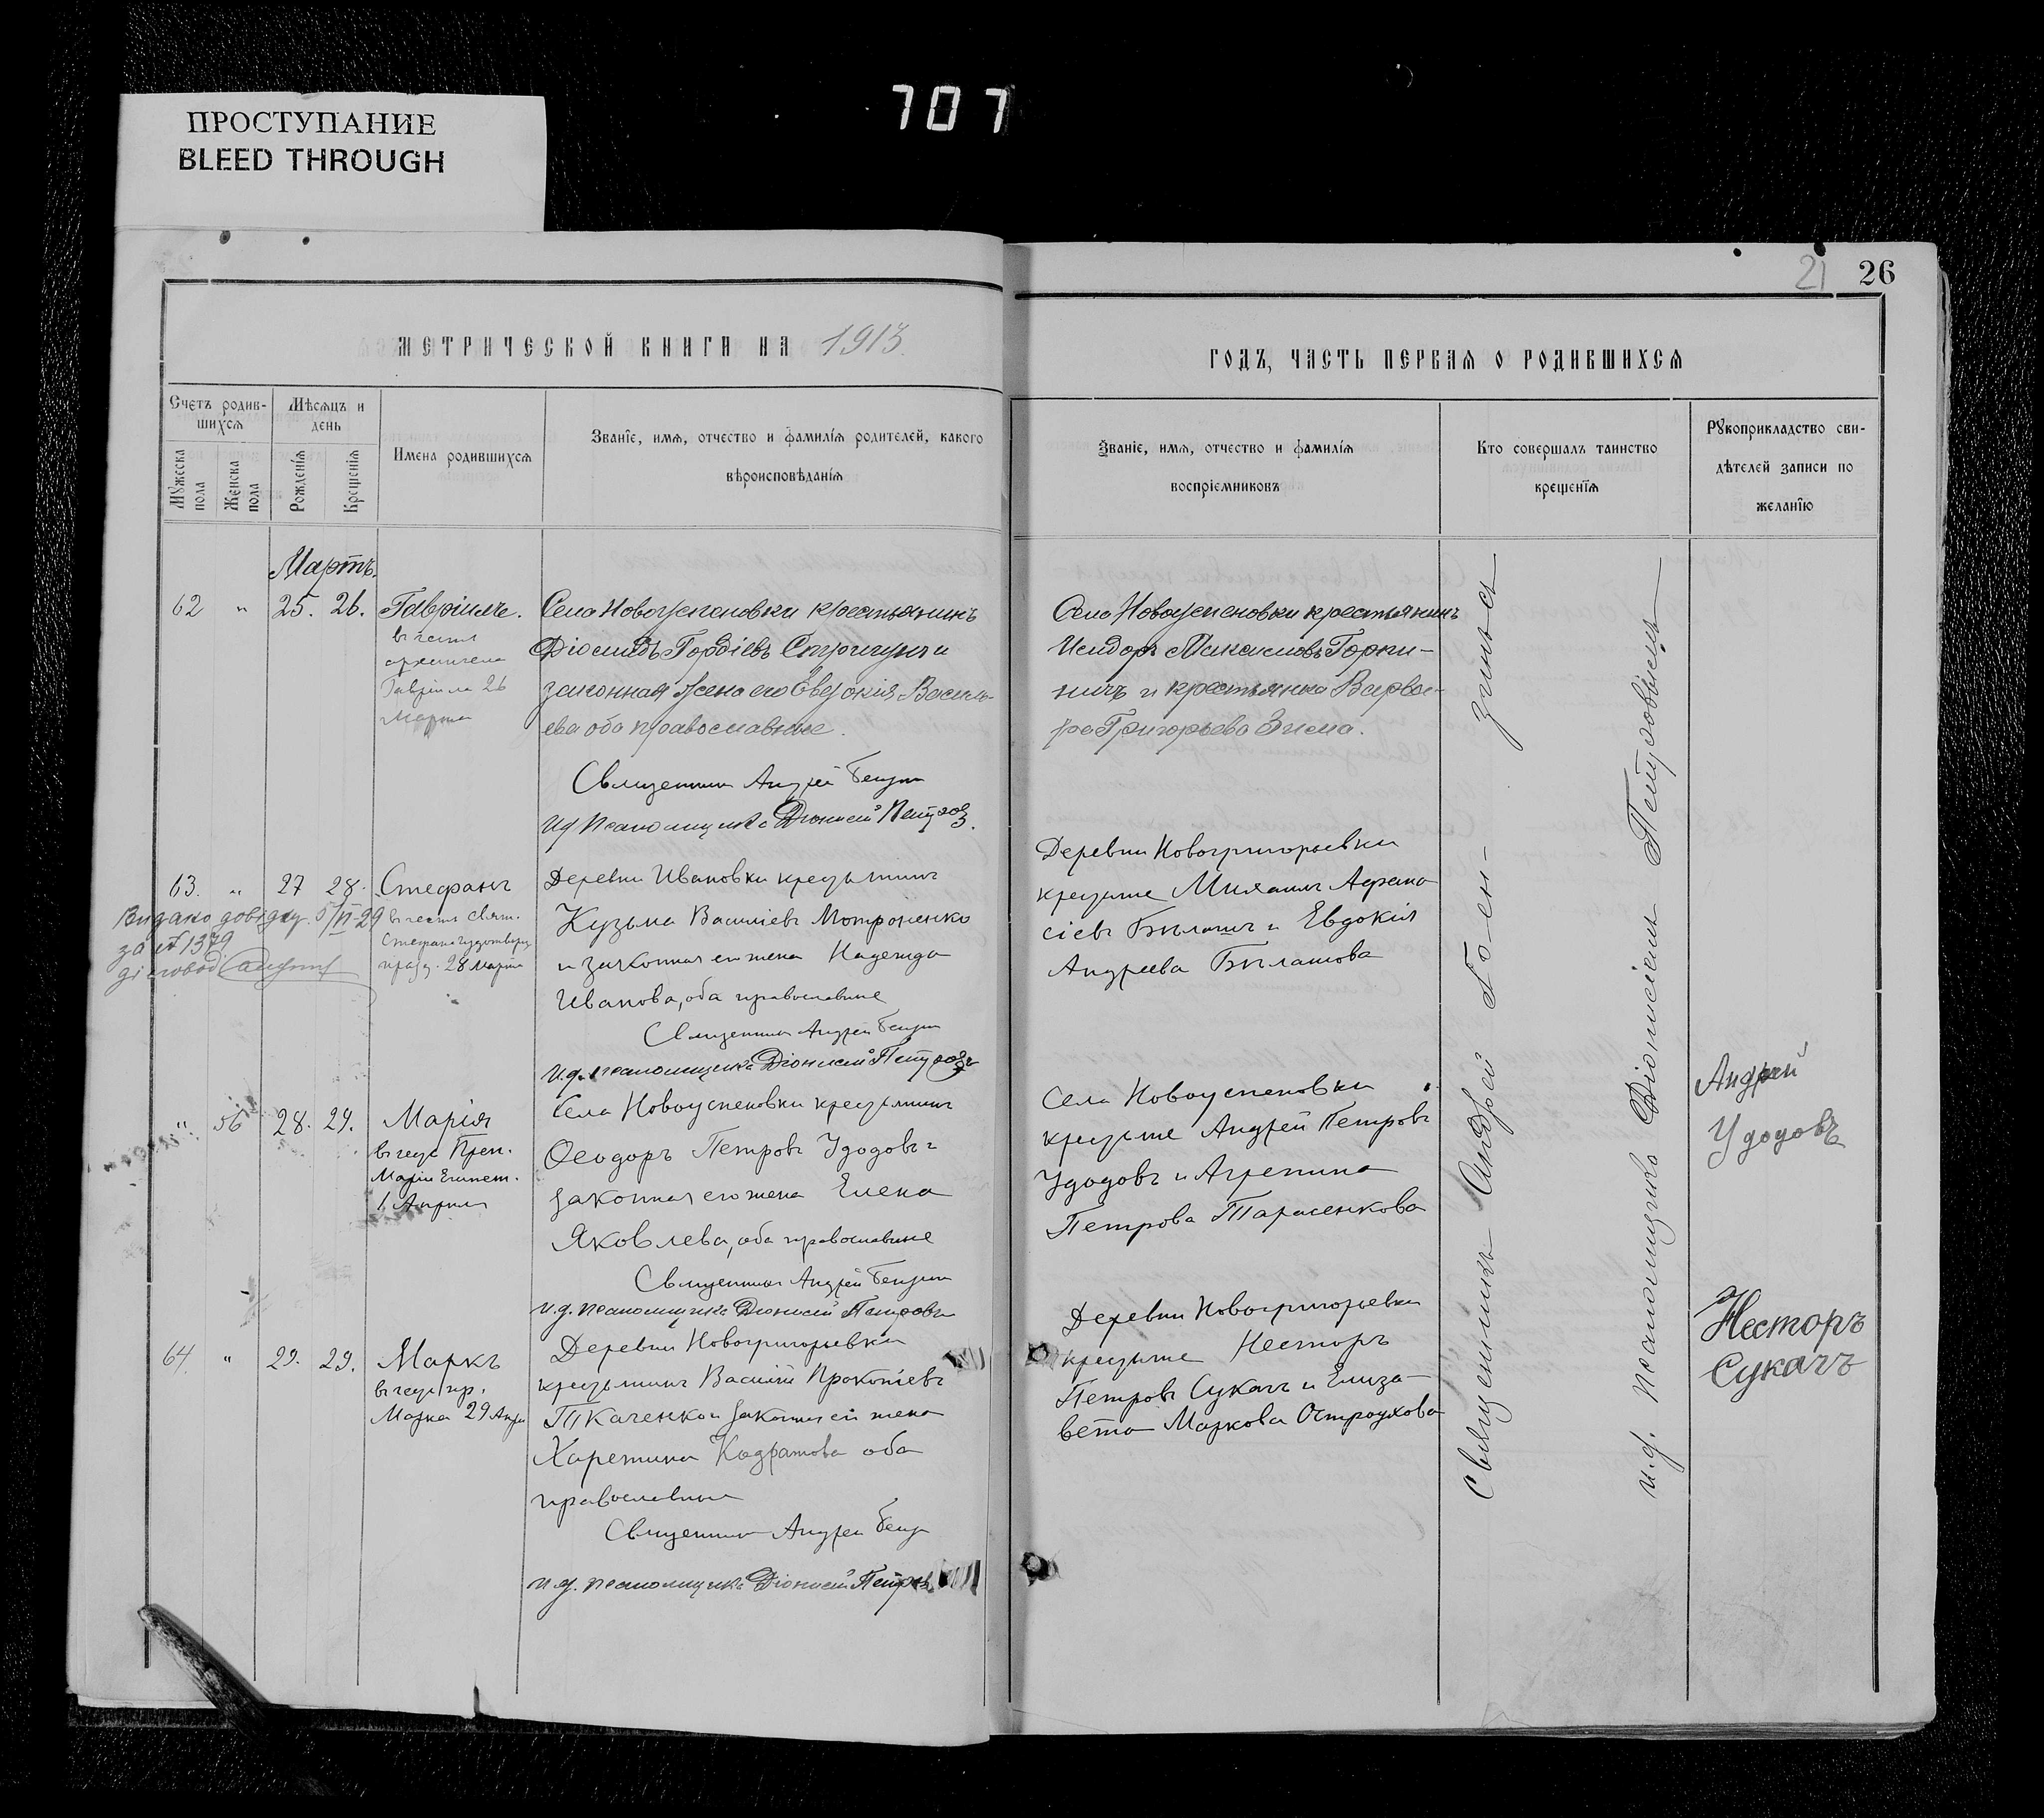 707
ПРОСТУПАНИЕ
BLEED THROUGH
21 26
МЕТРИЧЕСКОЙ КНИГИ НА 1913
Счетъ родив-
шихся
Мужеска пола
Женска пола
Мѣсяцъ и
день
Рожденія
Крещенія
Имена родившихся
Званіе, имя, отчество и фамилія родителей, какого
вѣроисповѣданія
Мартъ.
62 " 25. 26. Гавріилъ.
въ честь
архангела
Гавріила 26
Марта
Село Новоуспеновки крестьянинъ
Діомидъ Гордіевъ и
законная жена его Евдокія Василь-
ева оба православные.
Священникъ Андрей
ид Псаломщика Діонисій
63. " 27 28. Стефанъ
въ честь свят.
Стефана чудотворц
празд. 28 Марта
Видано довідку 5/VI-29
за № 1379
діловод
Деревни Ивановки крестьянинъ
Кузьма Василіевъ Мотроненко
и законная его жена Надежда
Иванова, оба православные
Священникъ Андрей
И.д. псаломщика Діонисій
" 56 28. 29. Марія
въ честь Преп.
Маріи Египет.
1 Апрѣля
Села Новоуспеновки крестьянинъ
Ѳеодоръ Петровъ Удодовъ и
законная его жена Елена
Яковлева, оба православные
Священникъ Андрей
И.д. псаломщика Діонисій
64. " 29. 29. Маркъ
въ честь пр.
Марка 29 Апрѣ
Деревни Новогригорьевки
крестьянинъ Василій Прокопіевъ
Ткаченко и законная его жена
Харетина Кодратова оба
православные
Священникъ Андрей
И.д. псаломщика Діонисій
ГОДЪ, ЧАСТЬ ПЕРВАЯ О РОДИВШИХСЯ
Званіе, имя, отчество и фамилія
воспріемниковъ
Кто совершалъ таинство
крещенія
Рукоприкладство сви-
дѣтелей записи по
желанію
Село Новоуспеновки крестьянинъ
Исидоръ Максимовъ Горпи-
ничъ и крестьянка Варва-
ра Григорьева Зима.
Деревни Новогригорьевки
крестьяне Михаилъ Афана
сіевъ Бѣлашъ и Евдокія
Андреева Бѣлашова
Села Новоуспеновки
крестьяне Андрей Петровъ
Удодовъ и Агрепина
Петрова Тарасенкова
Деревни Новогригорьевки
крестьяне Несторъ
Петровъ Сукачъ и Елиза-
вета Маркова Остроухова
Священникъ Андрей
и.д. псаломщика Діонисій
Андрей
Удодовъ
Несторъ
Сукачъ